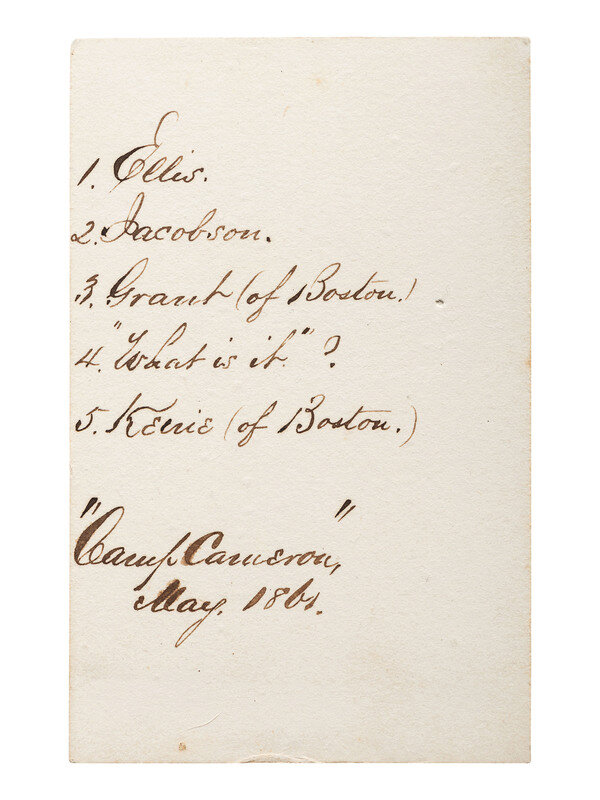 1. Ellis.
2. Jacobson.
3. Grant (of Boston.)
4. "What is it." ?
5. (of Boston.)
"Camp Cameron,"
May. 1861.